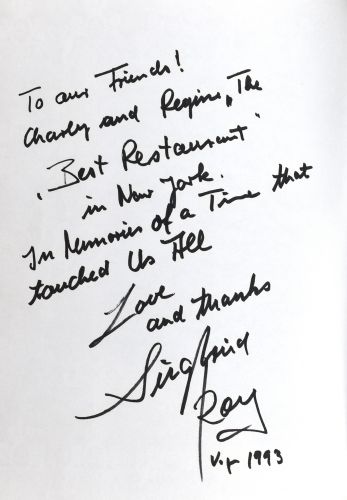 To our Friends!
Charly and Regine, The
"Best Restaurant"
in New York.
In Memories of a Time that
touched Us All
Love
and thanks
Siegfried
Roy
1993